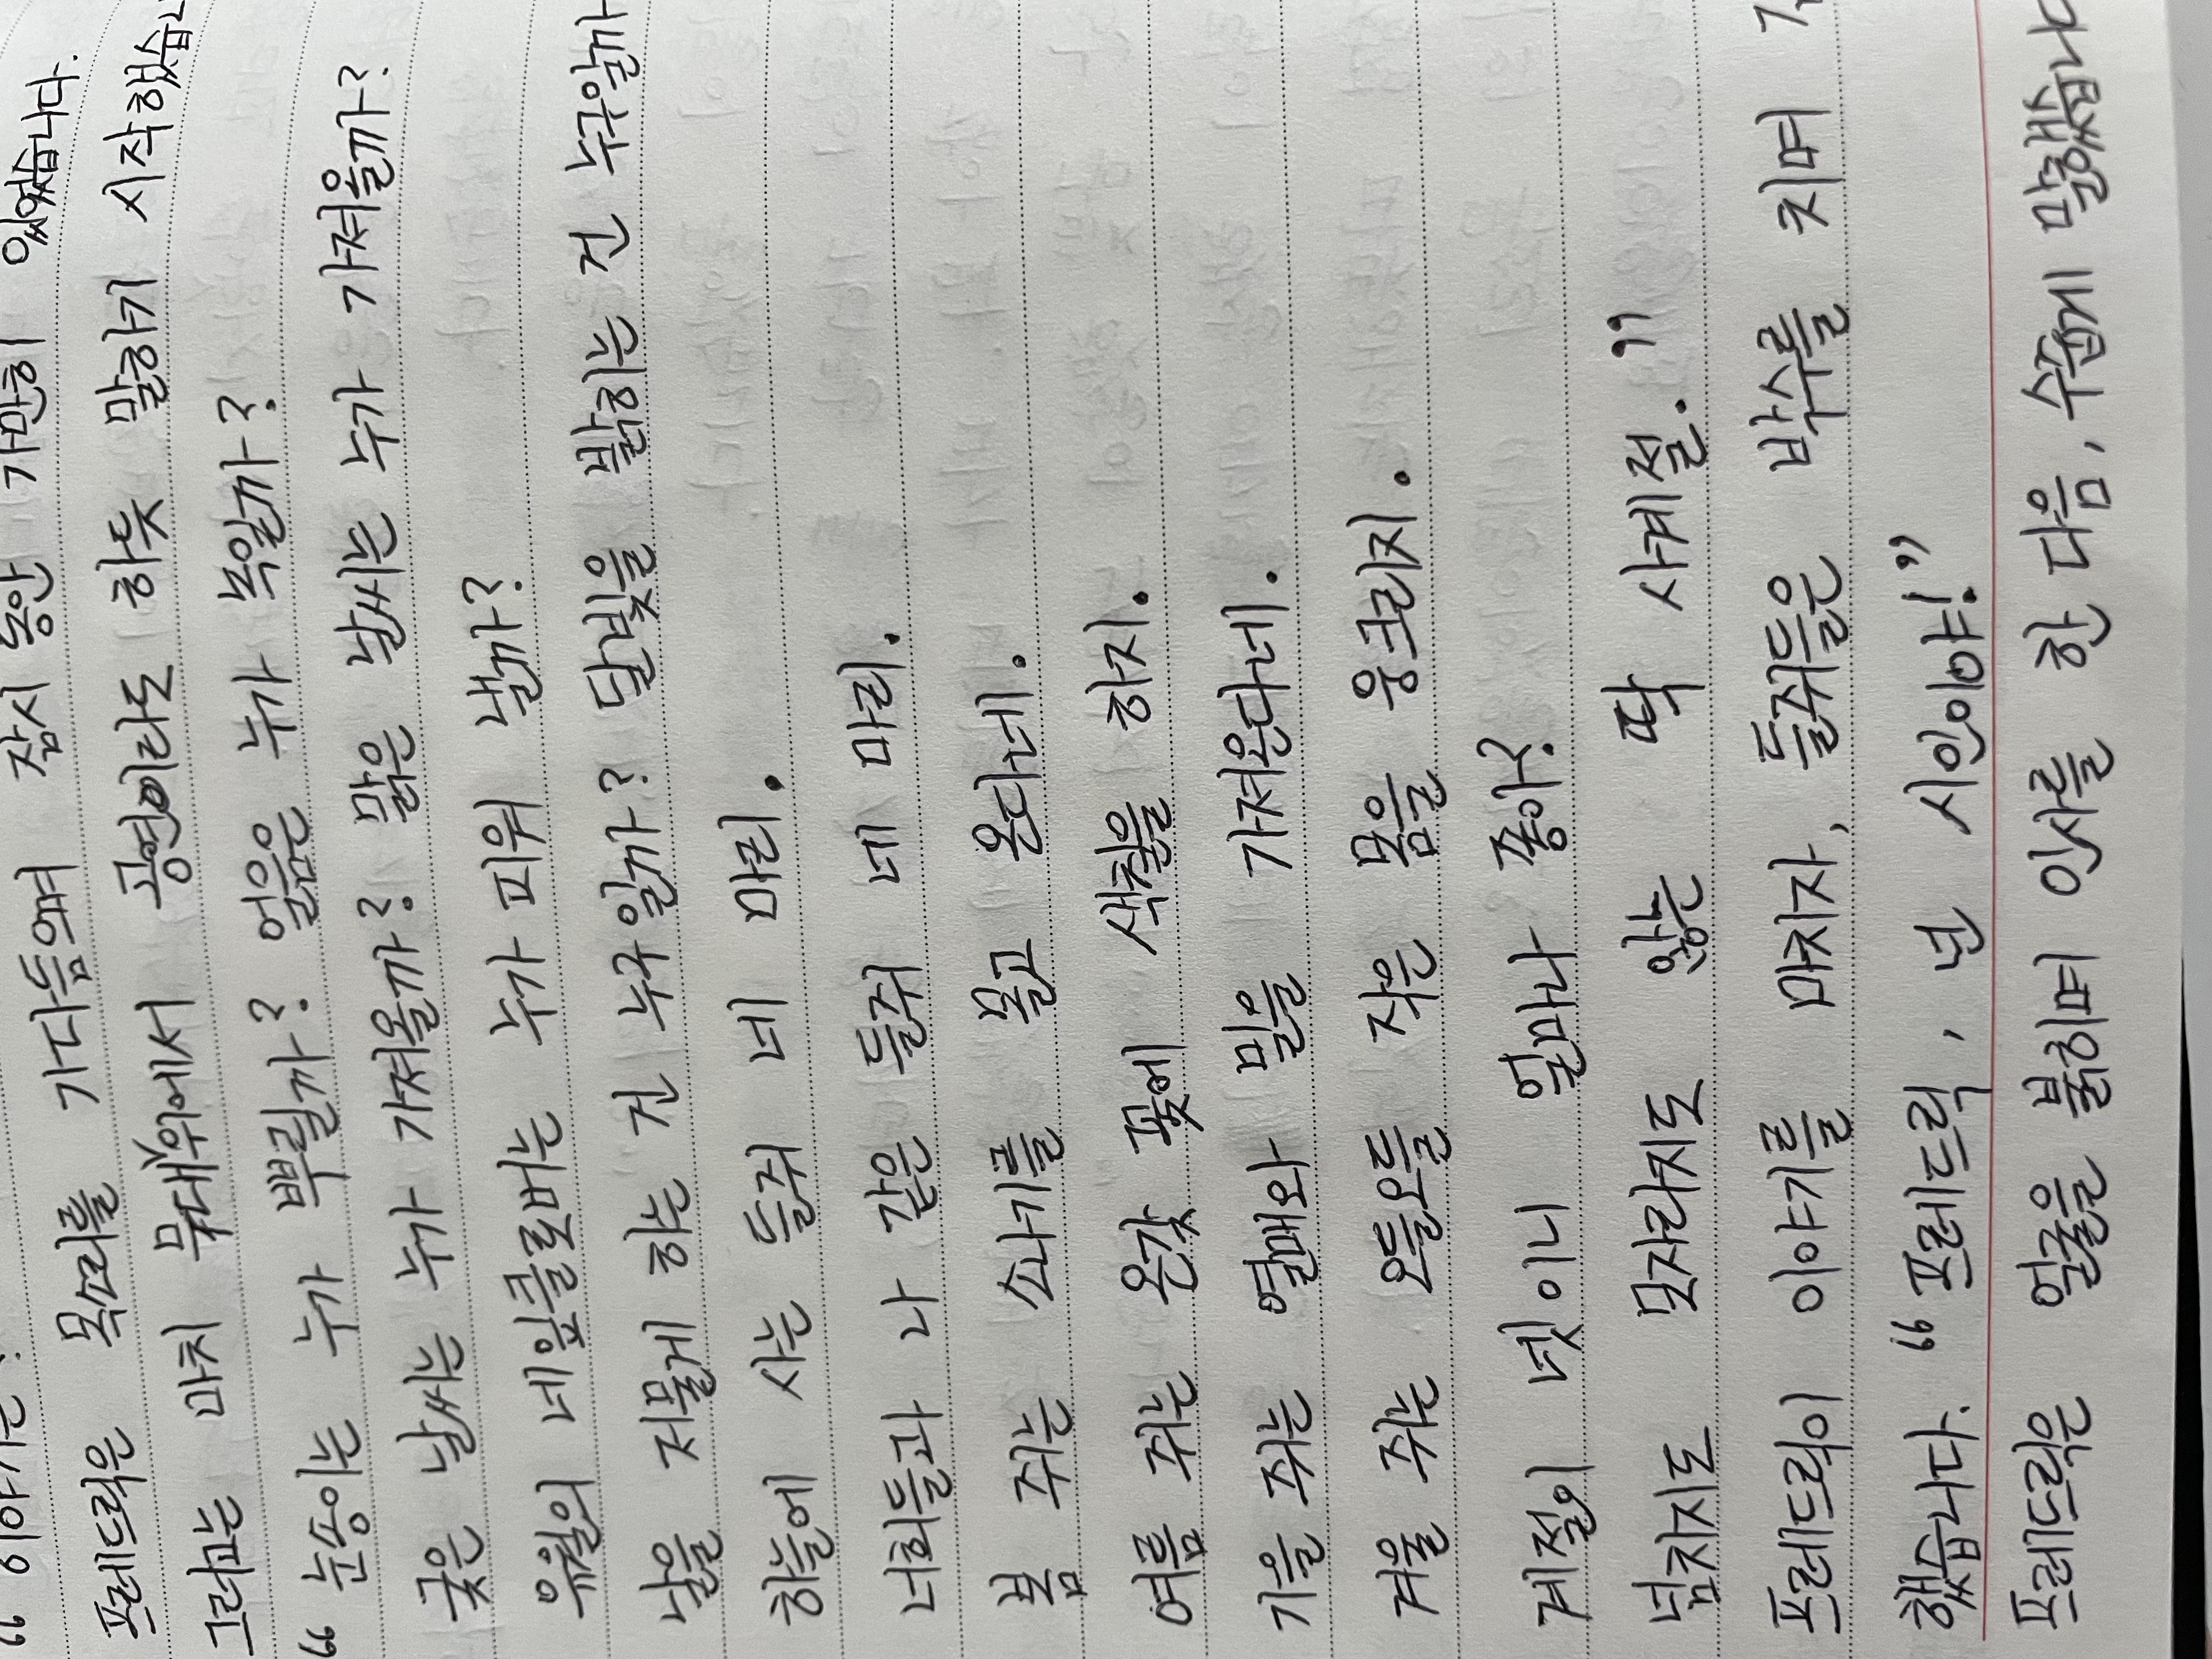 “ 이야기는?
프레드릭은 목소리를 가다듬으며 잠시 동안 가만히 있었습니다.
그러고는 마치 무대 위에서 공연이라도 하듯 말하기 시작했습니
“ 눈송이는 누가 뿌릴까? 얼음은 누가 녹일까?
궂은 날씨는 누가 가져올까? 맑은 날씨는 누가 가져올까?
유월의 네잎클로버는 누가 피워 낼까?
날을 저물게 하는 건 누구일까? 달빛을 밝히는 건 누구일까
하늘에 사는 들쥐 네 마리.
너희들과 나 같은 들쥐 네 마리.
봄 쥐는 소나기를 몰고 온다네.
여름 쥐는 온갖 꽃에 색칠을 하지.
가을 쥐는 열매와 밀을 가져온다네.
겨울 쥐는 오들오들 작은 몸을 웅크리지.
계절이 넷이니 얼마나 좋아?
넘치지도 모자라지도 않는 딱 사계절.”
프레드릭이 이야기를 마치자, 들쥐들은 박수를 치며
했습니다. “프레드릭, 넌 시인이야!”
프레드릭은 얼굴을 붉히며 인사를 한 다음, 수줍게 말했습니다